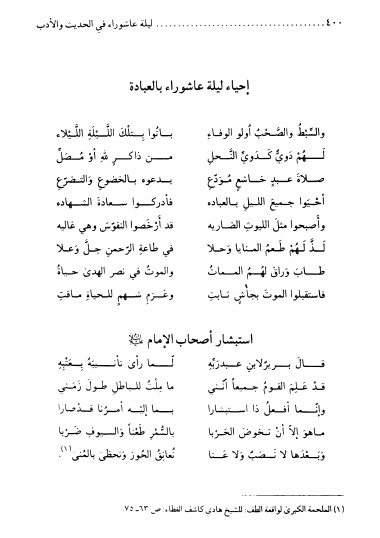 ٤٠٠ ليلة عاشوراء في الحديث والأدب
إحياء ليلة عاشوراء بالعبادة
والسِّبْطُ والصَّحْبُ أولو الوفاءِ باتُوا بِتلْكَ اللَّيْلَةِ اللَّيْلاءِ
لَهُمْ دَويٌّ كَدَويِّ النَّحلِ مـن ذاكـرٍ للهِ أوْ مُصَلِّ
صلاةَ عبدٍ خاشعٍ مُوَدِّعِ يدعوه بالخضوعِ والتضرّعِ
أحْيَوا جميعَ الليلِ بالعباده فأدركوا سعادةَ الشهاده
وأصبحوا مثلَ الليوثِ الضاريه قد أرْخَصوا النفوْسَ وهي غاليه
لَذَّ لَهُمْ طعمُ المنايا وَحلا في طاعةِ الرحمنِ جلَّ وَعلا
طـابَ وَراقَ لَهُـمُ المماتُ والموتُ في نصرِ الهدىٰ حياةُ
فاستقبلوا الموتَ بجأشٍ ثابتِ وعَـزمِ شهـمٍ للحياةِ ماقتِ
استبشار أصحاب الإمام
قـال بـريـرٌ لابنِ عبدربِّه لمّـا رأىٰ تأنيبَهُ بِعَتْبِهِ
قدْ عَلِمَ القومُ جميعاً أنّني ما مِلْتُ للباطلِ طولَ زَمَني
وإنّـما أفعلُ ذا استبشارا بـما إليْـهِ أمـرُنا قـدْ صارا
ماهوَ إلاّ أنْ نخوضَ الحَرْبا بالسُّمْرِ طَعْناً والسيوفِ ضَرْبا
وَبَعْدَها لا نَصَبٌ وَلا عَنا نُعانِقُ الحُورَ وَنحظىٰ بالمُنى(١).
(١) الملحمة الكبرىٰ لواقعة الطف: للشيخ هادي كاشف الغطاء، ص ٦٣ـ٧٥.